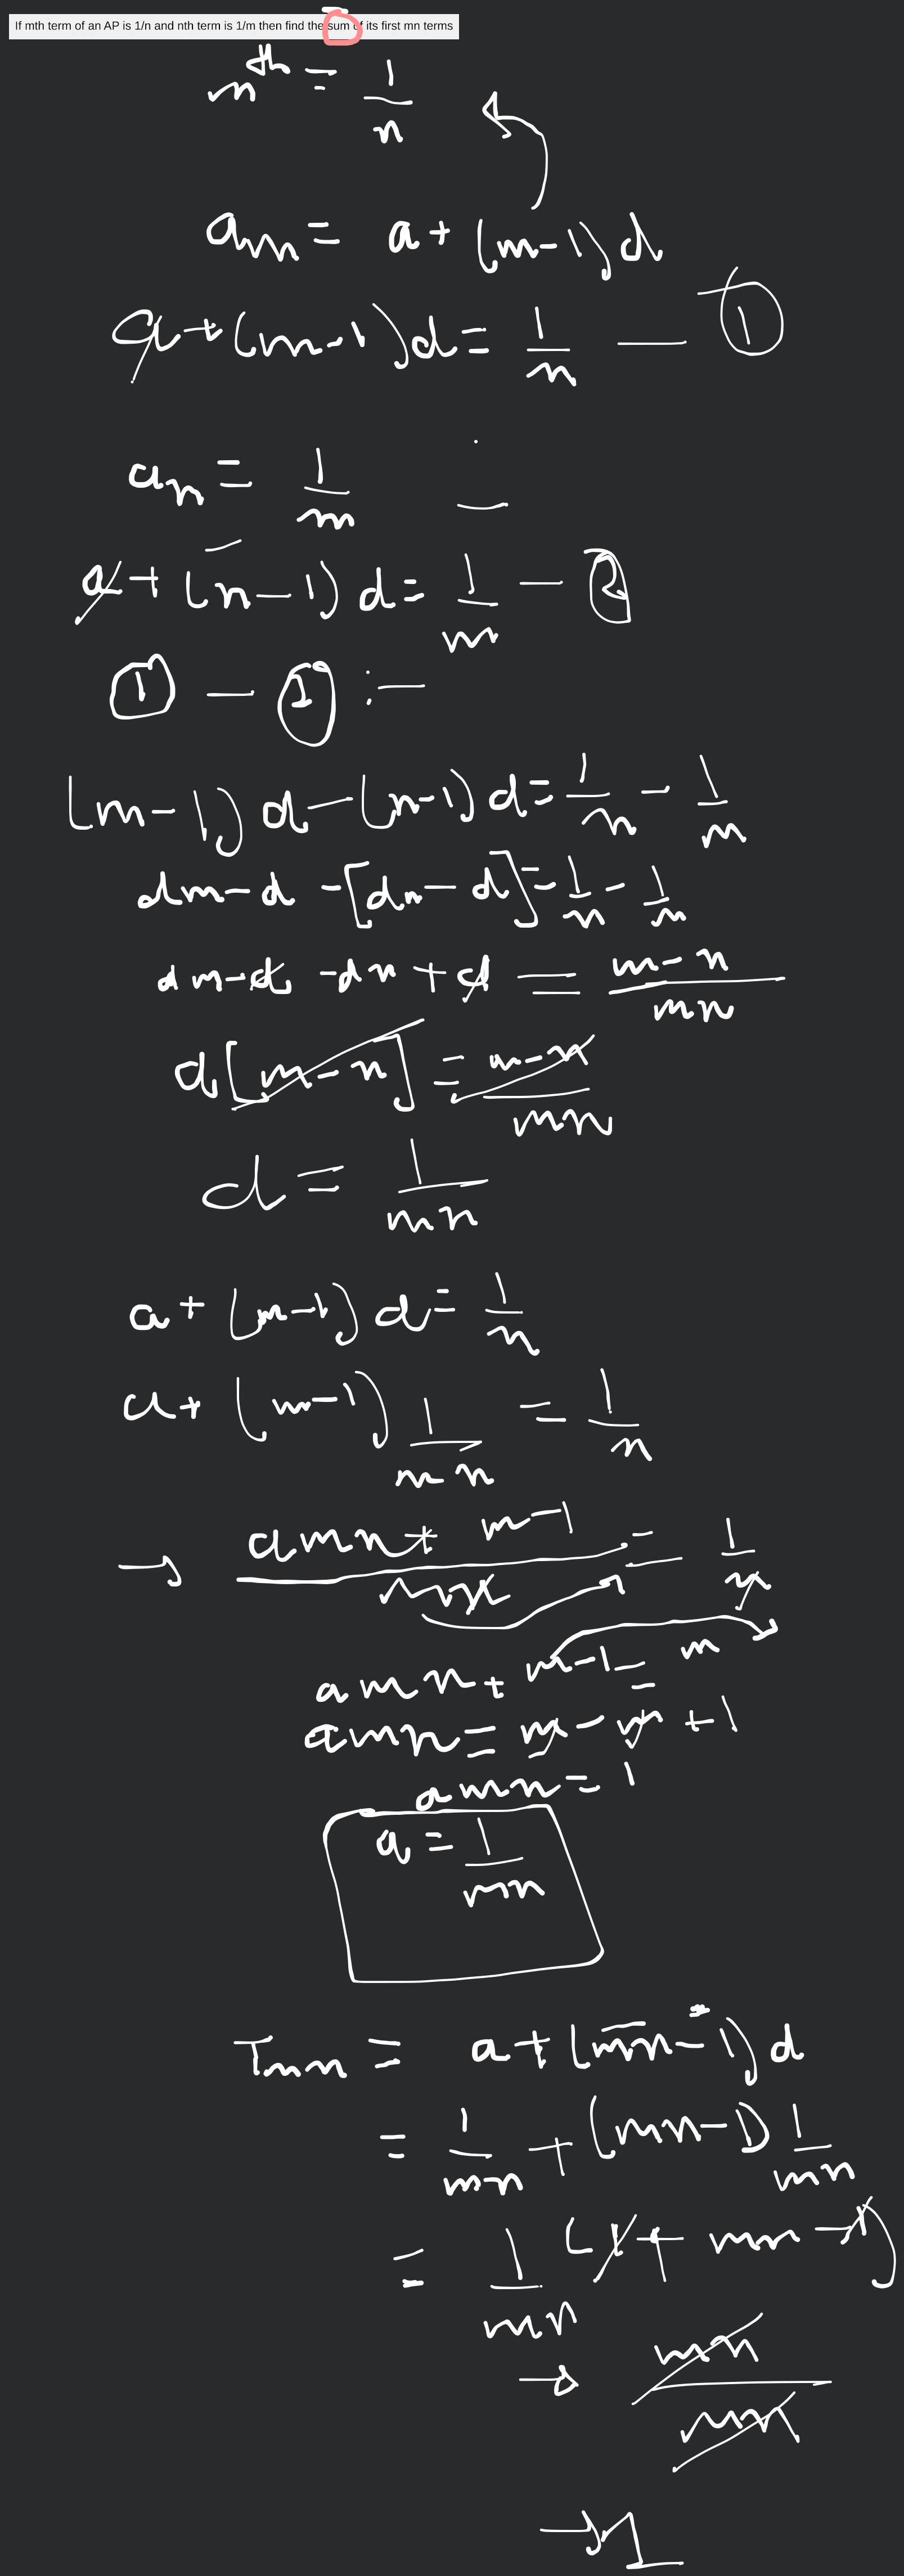 If mth term of an AP is 1/n and nth term is 1/m then find the sum of its first mn terms
mth = 1/n
am = a + (m-1)d
a + (m-1)d = 1/n — ①
an = 1/m —
a + (n-1)d = 1/m — ②
① — ② :—
(m-1)d - (n-1)d = 1/n - 1/m
dm - d - [dn - d] = 1/n - 1/m
dm - d - dn + d = (m-n)/mn
d[m-n] = (m-n)/mn
d = 1/mn
a + (m-1)d = 1/n
a + (m-1) 1/mn = 1/n
→ (amn + m-1)/mn = 1/n
amn + m-1 = m
amn = m - m + 1
amn = 1
a = 1/mn
Tmn = a + (mn-1)d
= 1/mn + (mn-1) 1/mn
= 1/mn (1 + mn - 1)
→ mn/mn
→ 1